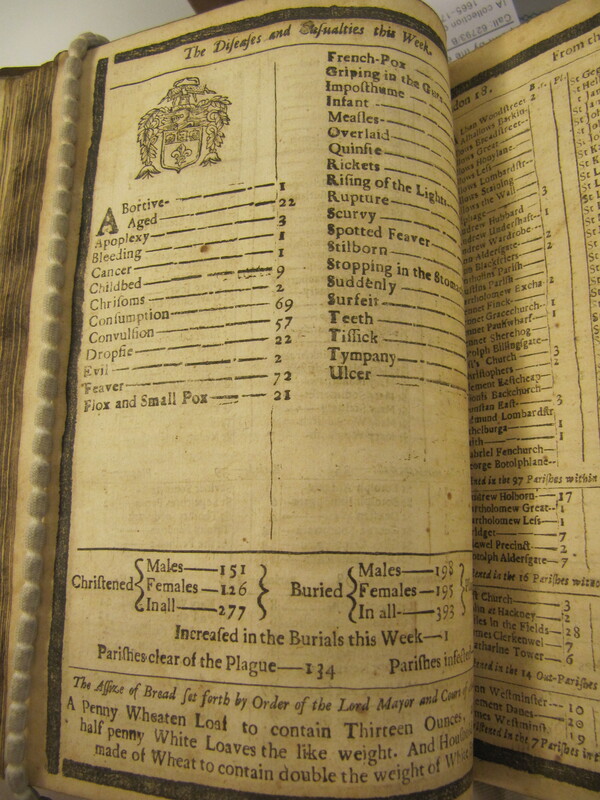 The Diſeaſes and Caſualties this Week.
Abortive 1
Aged 22
Apoplexy 3
Bleeding 1
Cancer 1
Childbed 9
Chriſoms 2
Conſumption 69
Convulſion 57
Dropſie 22
Evil 2
Feaver 72
Flox and Small Pox 21
French-Pox
Griping in the Guts
Impoſthume
Infant
Meaſles
Overlaid
Quinſie
Rickets
Riſing of the Lights
Rupture
Scurvy
Spotted Feaver
Stilborn
Stopping in the Stomac
Suddenly
Surfeit
Teeth
Tiſſick
Tympany
Ulcer
Chriſtened { Males—151
Females—126
In all—277 }
Buried { Males—198
Females—195
In all—393 }
Increaſed in the Burials this Week—1
Pariſhes clear of the Plague—134 Pariſhes infected
The Aſſize of Bread ſet forth by Order of the Lord Mayor and Court of
A Penny Wheaten Loaf to contain Thirteen Ounces,
half penny White Loaves the like weight. And Houſhold
made of Wheat to contain double the weight of White
From th
don 18.
lban Woodſtreet 2
lhallows Barkin
ows Breadſtreet
ows Great
ows Honylane
ows Leſs
ows Lombardſtr
ows Staining
ows the Wall 3
lphage
ndrew Hubbard
ndrew Underſhaft 1
rew Wardrobe
Alderſgate 2
Blackfriers
tholins Pariſh
uſtins Pariſh
artholomew Excha 2
nnet Finck
nnet Gracechurch 1
nnet Paulſwharf 1
nnet Sherehog
otolph Billingſgate
t's Church 3
riſtophers 2
lement Eaſtcheap
ionis Backchurch
unſtan Eaſt 3
dmund Lombardſtr
thelburga 1
aith 1
abriel Fenchurch
eorge Botolphlane
ened in the 97 Pariſhes within
ndrew Holborn 17
artholomew Great 1
artholomew Leſs 1
ridget 7
ewel Precinct 2
otolph Alderſgate 7
ened in the 16 Pariſhes witho
ſt Church 3
hn at Hackney 2
iles in the Fields 28
mes Clerkenwel 7
atharine Tower 6
tened in the 14 Out-Pariſhes
Weſtminſter 10
ement Danes 20
ames Weſtminſt. 19
iſtened in the 7 Pariſhes in t
Call 62793 B